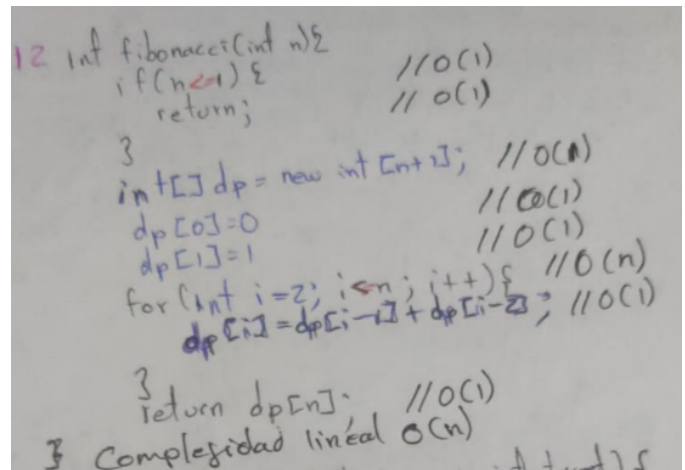 12 int fibonacci(int n){
if(n<=1){ //O(1)
return; // O(1)
}
int[] dp = new int [n+1]; //O(n)
dp[0]=0 //O(1)
dp[1]=1 //O(1)
for (int i=2; i<=n; i++){ //O(n)
dp[i]=dp[i-1]+dp[i-2]; //O(1)
}
return dp[n]; //O(1)
} Complejidad lineal O(n)